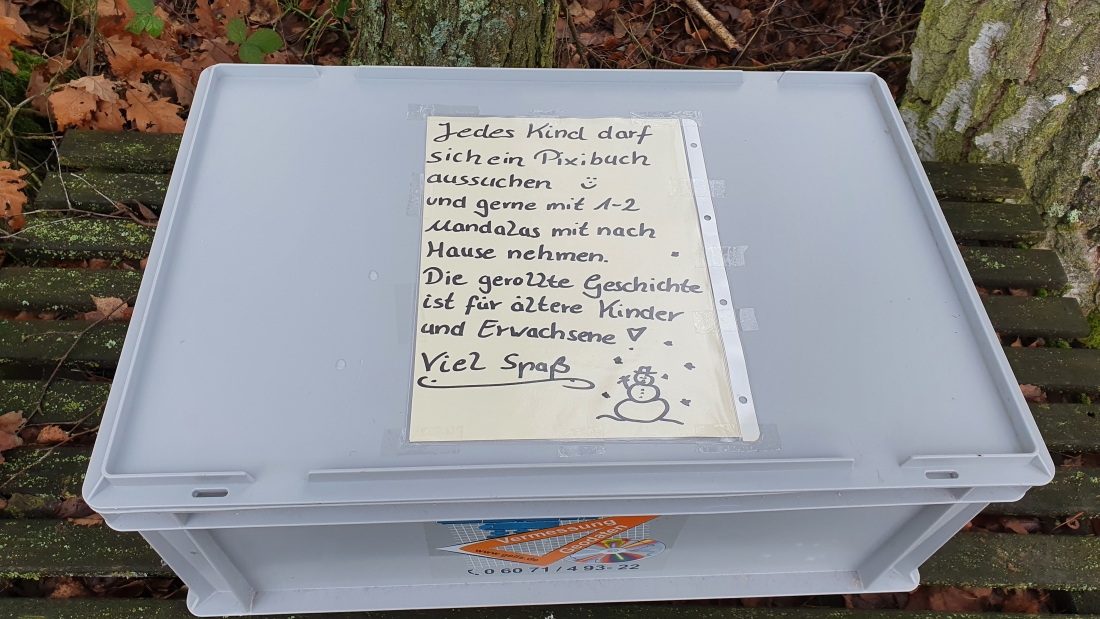 Jedes Kind darf
sich ein Pixibuch
aussuchen
und gerne mit 1-2
Mandalas mit nach
Hause nehmen.
Die gerollte Geschichte
ist für ältere Kinder
und Erwachsene !
Viel Spaß
Vermessung
Geodaten
0 60 71 / 4 93- 22